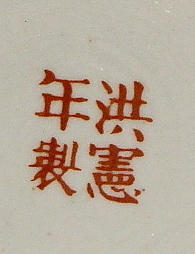 洪憲
年製